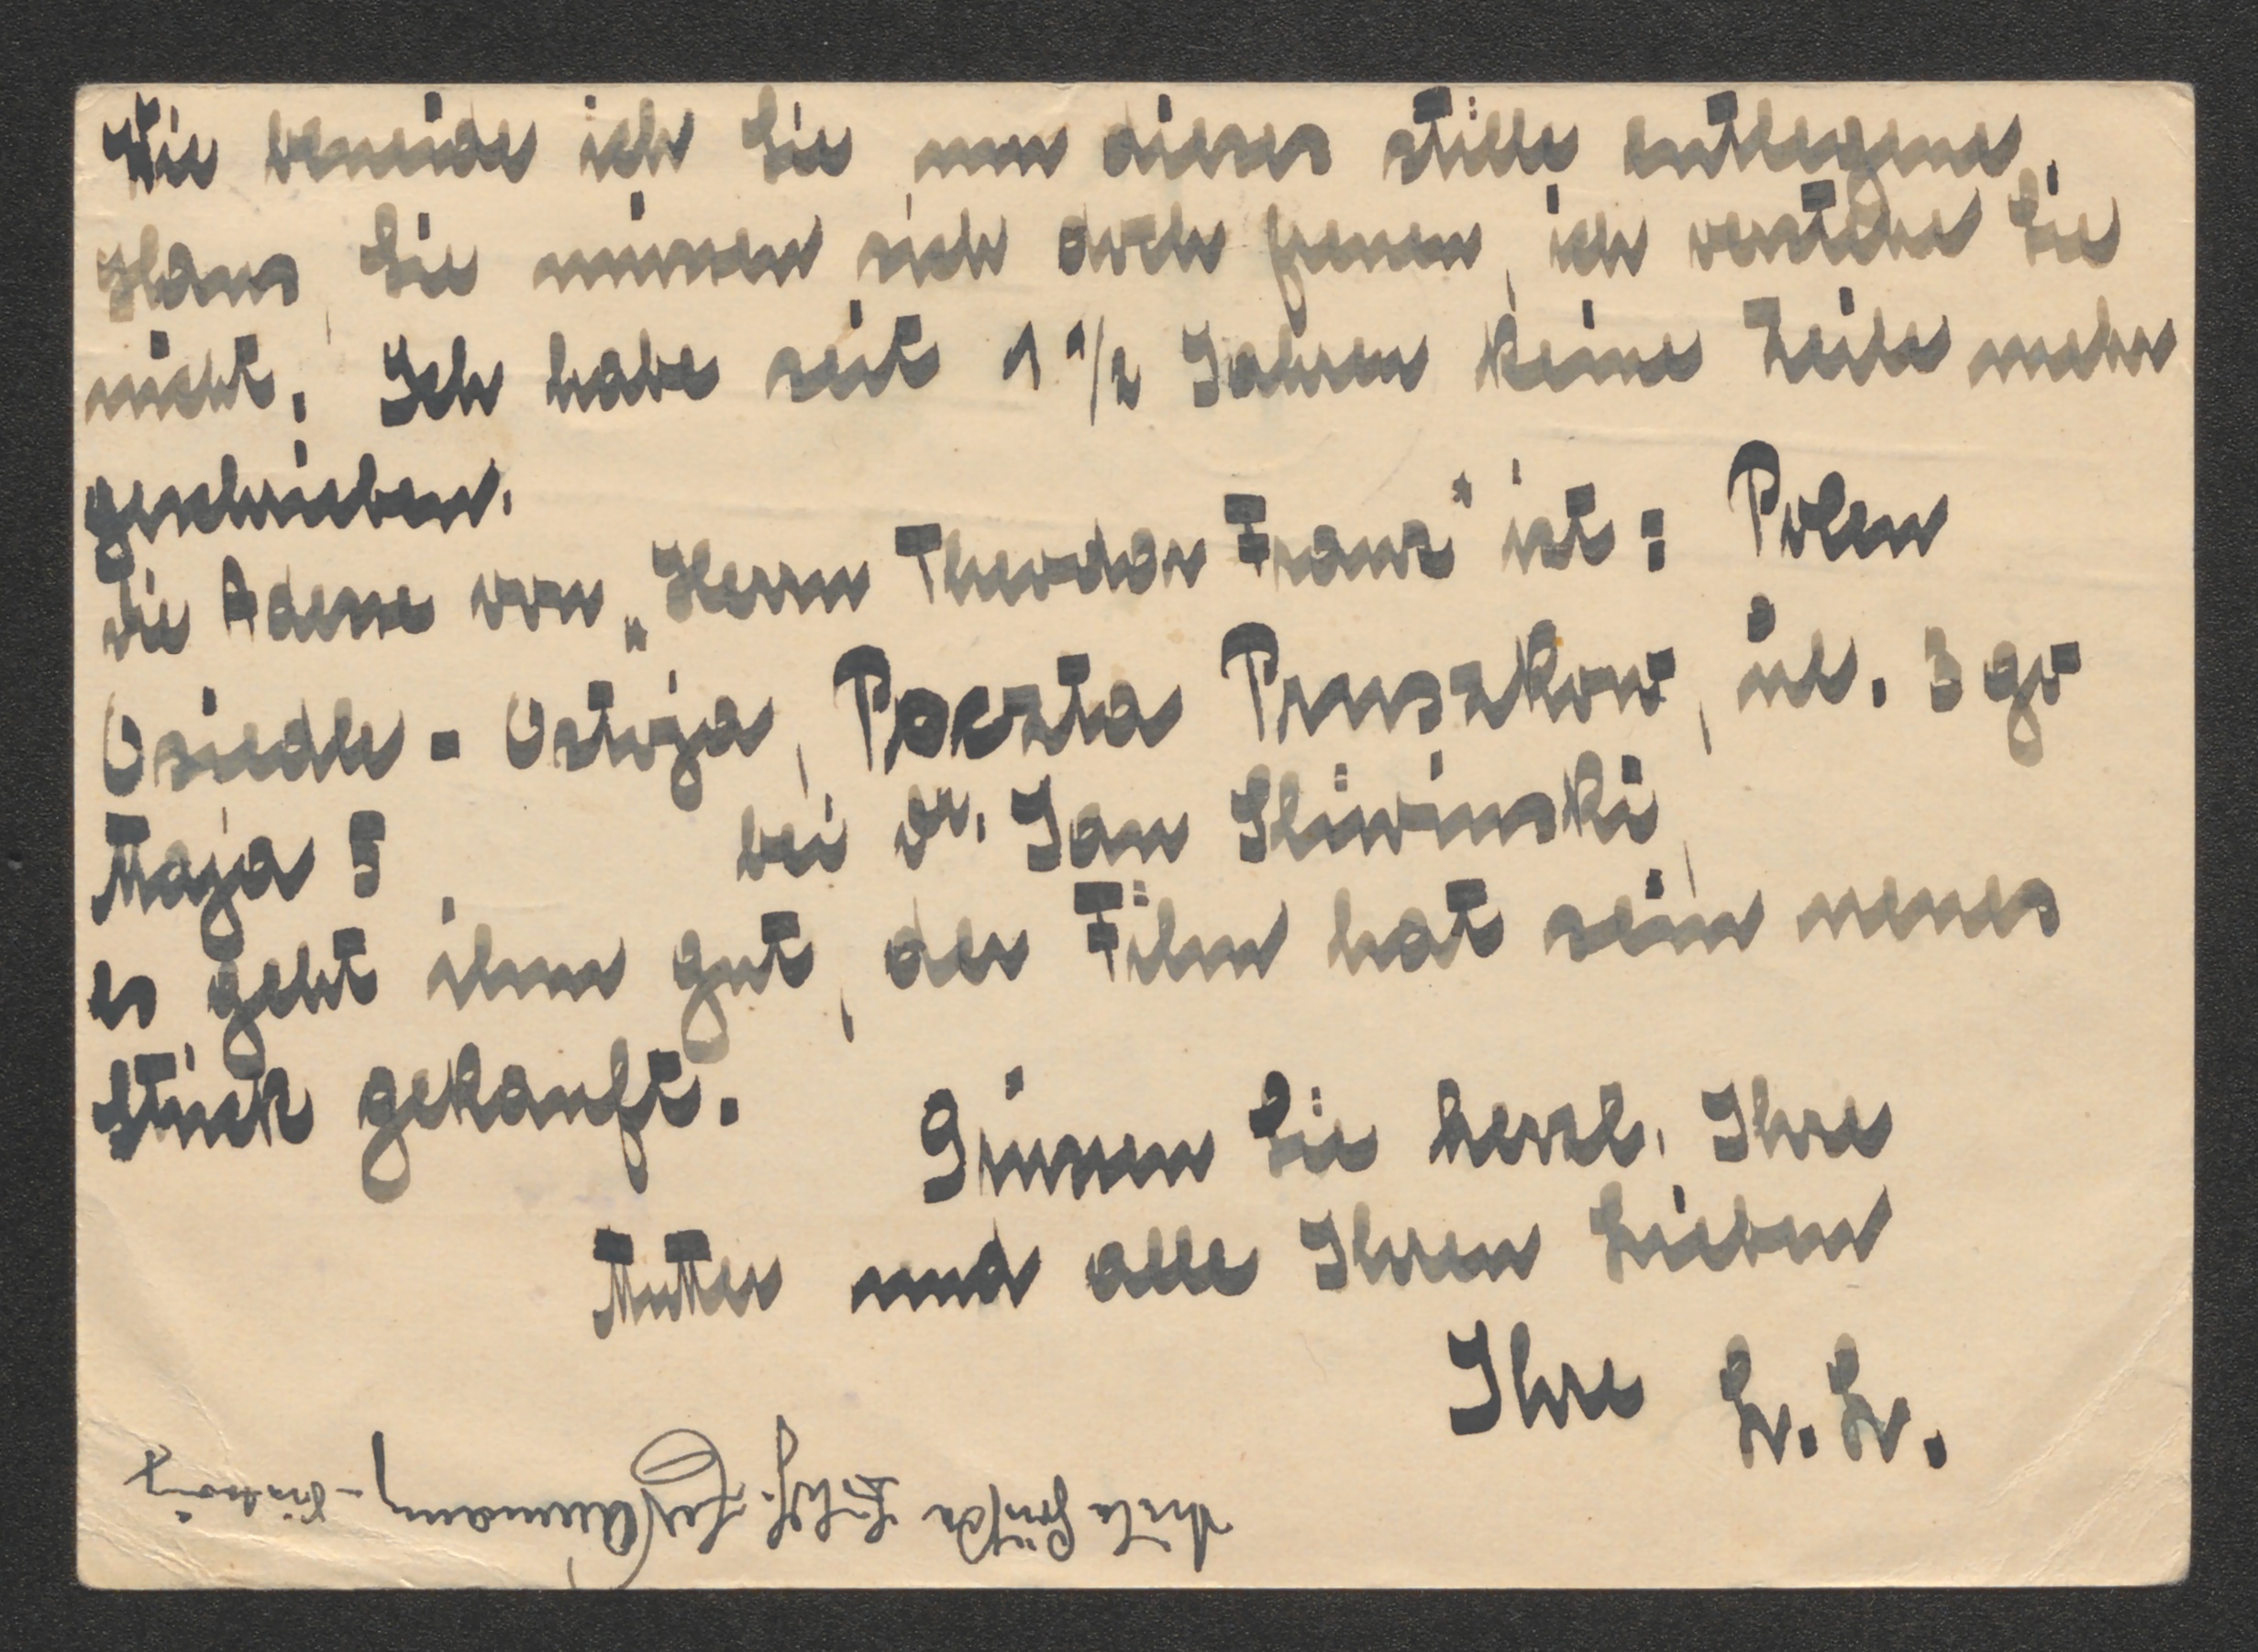 Wie beneide ich Sie um dieses stille entlegene
Haus, Sie müssen sich doch freuen, ich verstehe Sie
nicht. Ich habe seit 1 1/2 Jahren keine Zeile mehr
geschrieben.
die Adresse von „Herrn Theodor Franz" ist: Polen
Osiedle - Ostoja, Poczta Pruszkow, ul. 3 go
Maja 5 bei Dr. Jan Sliwinski,
es geht ihm gut, der Film hat sein neues
Stück gekauft.
Grüssen Sie herzl. Ihre
Mutter und alle Ihren Lieben
Ihre L. L.
Viele Grüsse